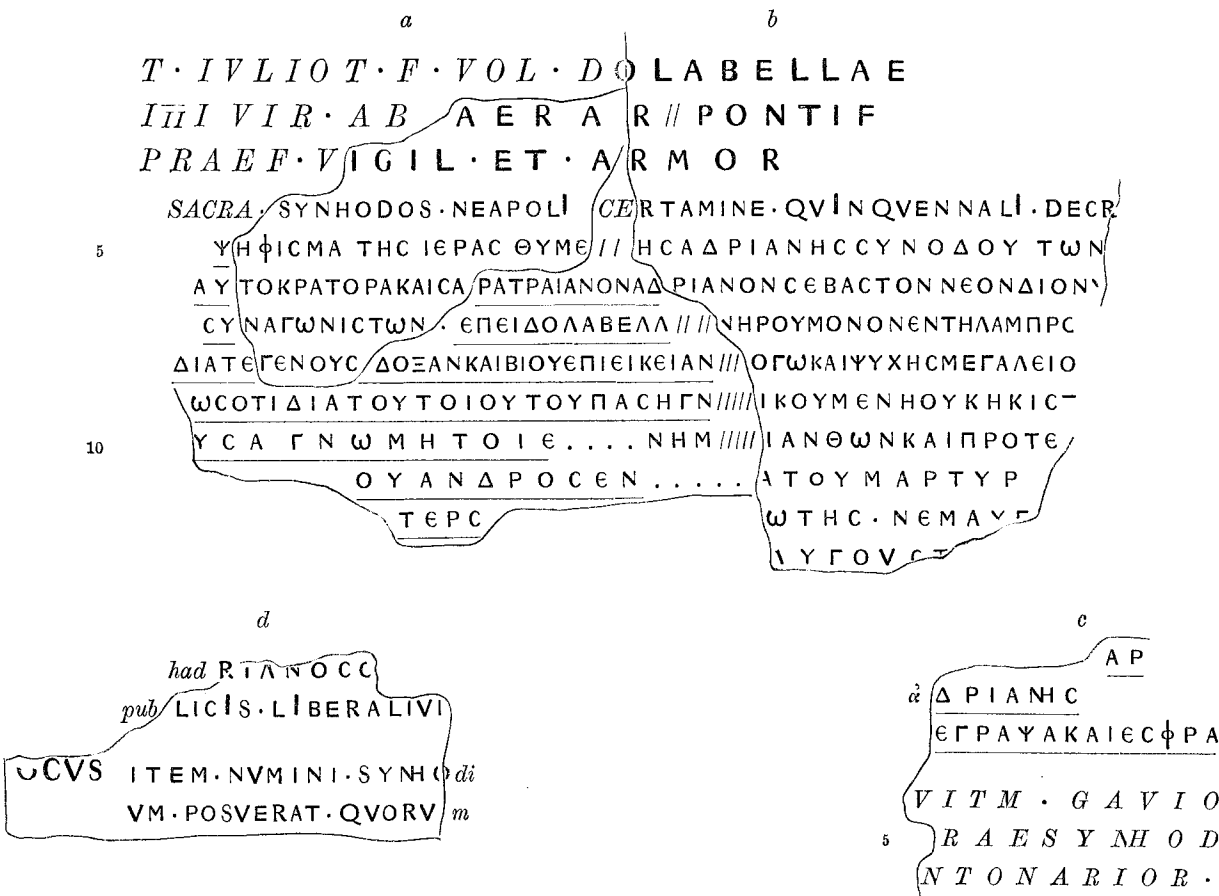 a b
T · IVLIO T · F · VOL · DOLABELLAE
IIII VIR · AB AERAR // PONTIF
PRAEF · VIGIL · ET · ARMOR
SACRA · SYNHODOS · NEAPOLI CERTAMINE · QVINQVENNALI · DECR
5 ΨΗΦΙCΜΑ ΤΗC ΙЄΡΑC ΘΥΜЄ // ΗCΑΔΡΙΑΝΗCCΥΝΟΔΟΥ ΤωΝ
ΑΥΤΟΚΡΑΤΟΡΑΚΑΙCΑΡΑΤΡΑΙΑΝΟΝΑΔΡΙΑΝΟΝCЄΒΑCΤΟΝΝЄΟΝΔΙΟΝ
CΥΝΑΓωΝΙCΤωΝ · ЄΠЄΙΔΟΛΑΒЄΛΛ // // ΝΗΡΟΥΜΟΝΟΝЄΝΤΗΛΑΜΠΡC
ΔΙΑΤЄΓЄΝΟΥC ΔΟΞΑΝΚΑΙΒΙΟΥЄΠΙЄΙΚЄΙΑΝ /// ΟΓωΚΑΙΨΥΧΗCΜЄΓΑΛЄΙΟ
ωCΟΤΙΔΙΑΤΟΥΤΟΙΟΥΤΟΥΠΑCΗΓΝ ///// ΙΚΟΥΜЄΝΗΟΥΚΗΚΙC
10 ΥCΑ ΓΝωΜΗΤΟΙЄ . . . . ΝΗΜ ///// ΙΑΝΘωΝΚΑΙΠΡΟΤЄ
ΟΥΑΝΔΡΟCЄΝ . . . . . ΑΤΟΥΜΑΡΤΥΡ
ΤЄΡC ωΤΗC · ΝЄΜΑΥΓ
ΛΥΓΟVCΤ
d
had RIANOCC
pub LICIS · LIBERALIVI
OCVS ITEM · NVMINI · SYNHO di
VM · POSVERAT · QVORV m
c
ΑΡ
ἀ ΔΡΙΑΝΗC
ЄΓΡΑΨΑΚΑΙЄCΦΡΑ
VITM · GAVIO
5 RAESYNHOD
NTONARIOR ·